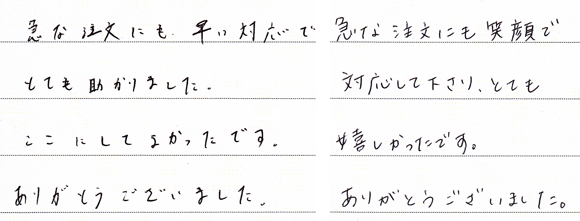 急な注文にも早い対応で
とても助かりました.
ここにしてよかったです.
ありがとうございました.
急な注文にも笑顔で
対応して下さり、とても
嬉しかったです。
ありがとうございました。